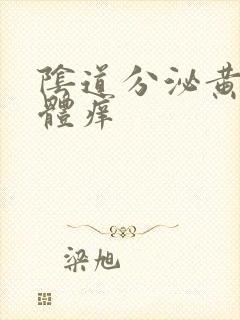 陰道分泌黃
體痒
梁旭